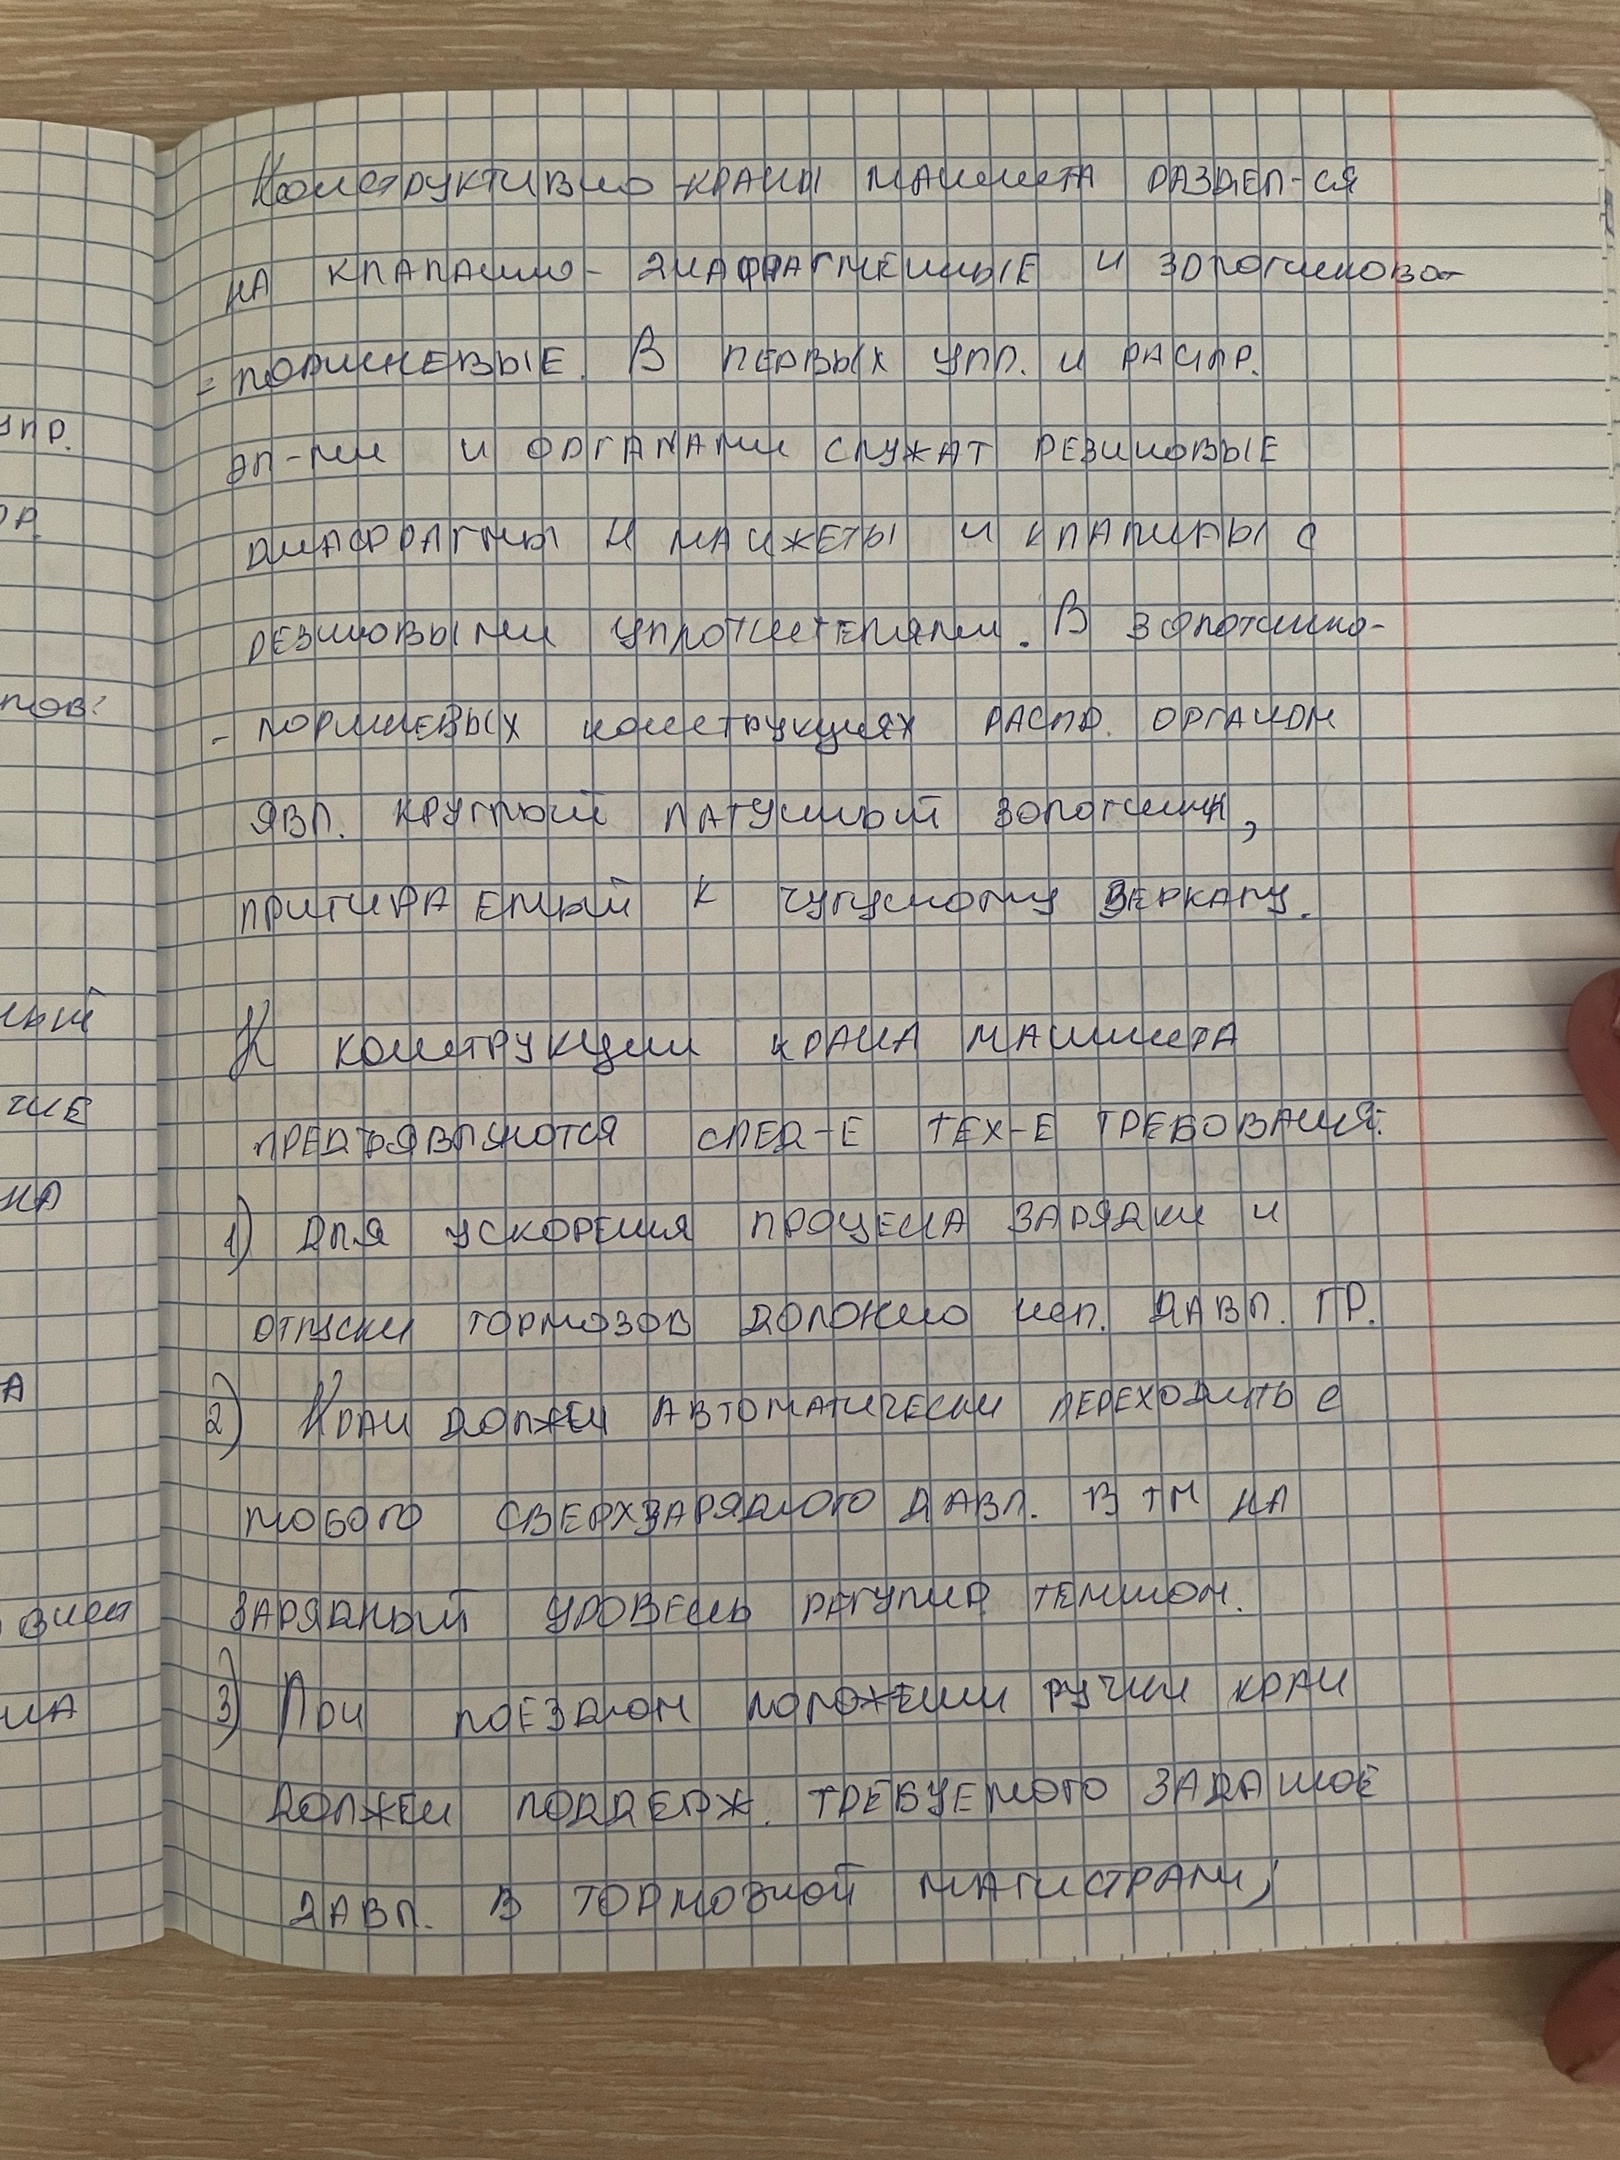 Конструктивно краны машиниста раздел-ся
на клапанно-диафрагменные и золотниково-
=поршневые. В первых упр. и распр.
эл-ми и органами служат резиновые
диафрагмы и манжеты и клапаны с
резиновыми уплотнителями. В золотнико-
-поршневых конструкциях распр. органом
явл. круглый латунный золотник,
притираемый к чугунному зеркалу.
К конструкции крана машиниста
предъявляются след-е тех-е требования:
1) Для ускорения процесса зарядки и
отпуски тормозов должно исп. давл. ГР.
2) Кран должен автоматически переходить с
любого сверхзарядного давл. в ТМ на
зарядный уровень регулир. темпом.
3) При поездном положении ручки кран
должен поддерж. требуемого заданое
давл. в тормозной магистрали;
упр.
ор.
ный
чие
на
а
на